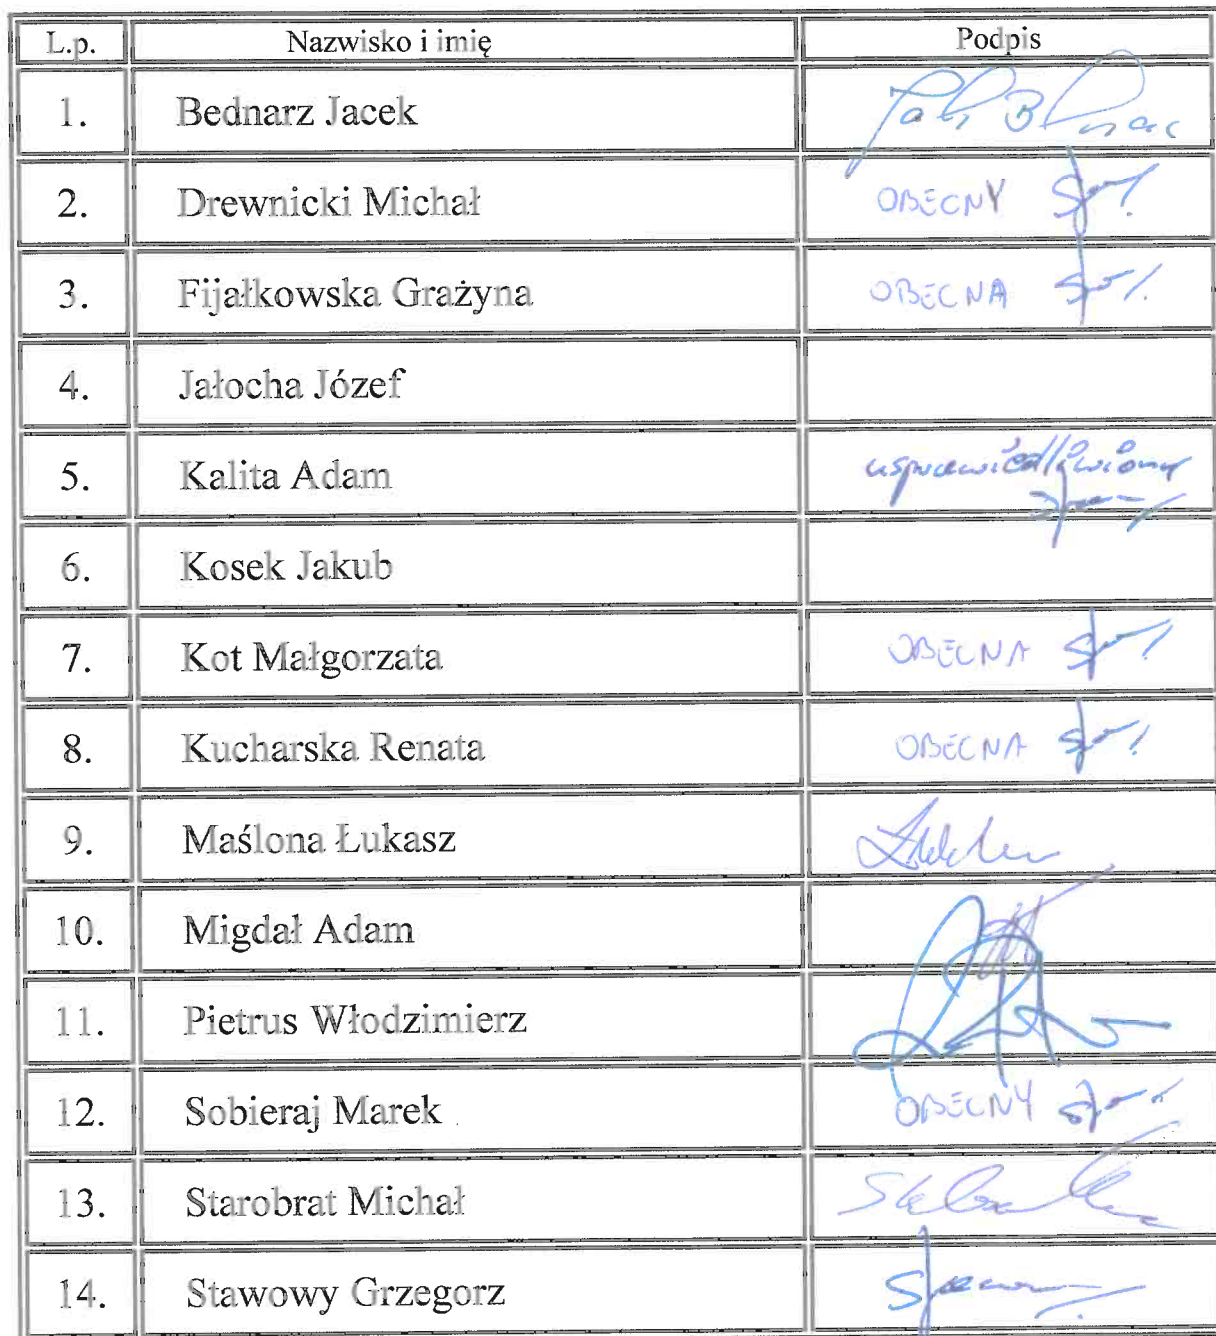 L.p. Nazwisko i imię Podpis
1. Bednarz Jacek
2. Drewnicki Michał OBECNY
3. Fijałkowska Grażyna OBECNA
4. Jałocha Józef
5. Kalita Adam usprawiedliwiony
6. Kosek Jakub
7. Kot Małgorzata OBECNA
8. Kucharska Renata OBECNA
9. Maślona Łukasz
10. Migdał Adam
11. Pietrus Włodzimierz
12. Sobieraj Marek OBECNY
13. Starobrat Michał
14. Stawowy Grzegorz